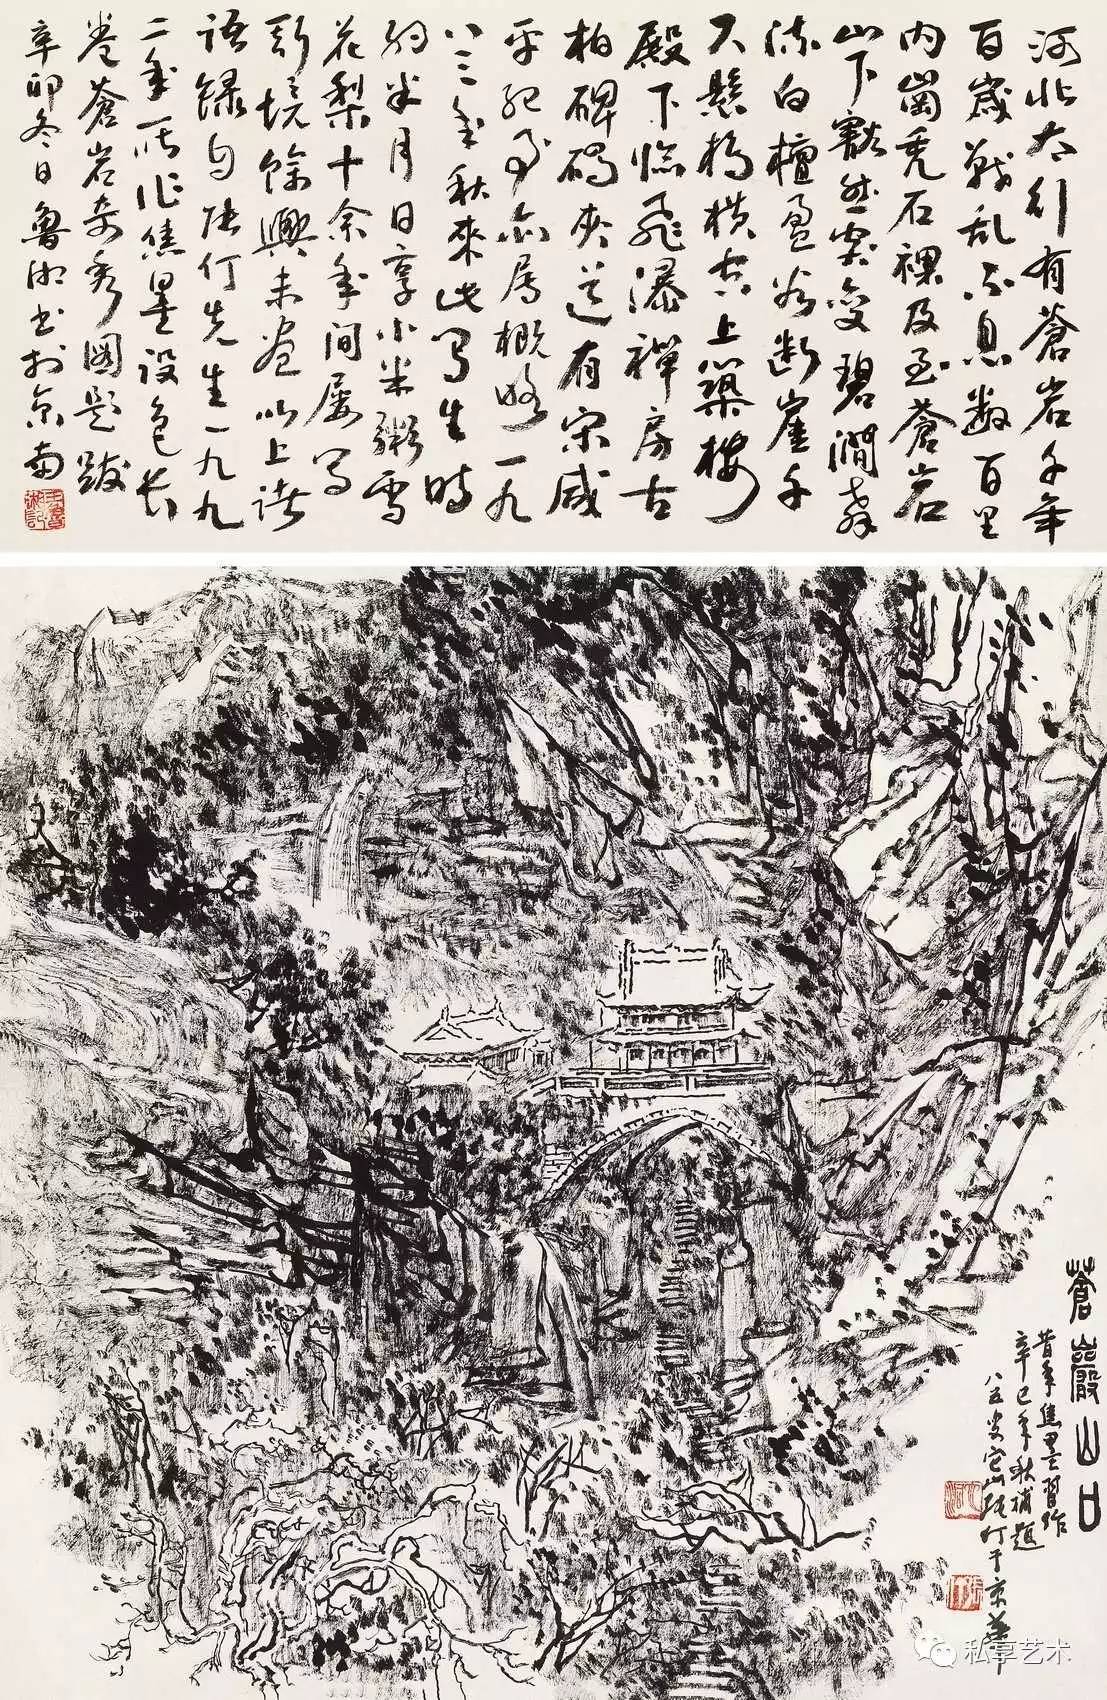 河北太行有蒼岩千年
百歲戰乱不息数百里
内崗秃石裸及至蒼岩
山下豁然突变碧澗奔
流白檀盈谷断崖千
尺懸橋横空上築楼
殿下临飛瀑禅房古
柏碑碣夾道有宋咸
平紀事亦属概略一九
八三年秋來此写生時
約半月日享小米粥雪
花梨十余年间屢写
斯境餘興未盡以上諸
语録自张仃先生一九九
二年所作焦墨設色长
卷蒼岩奇秀圖題跋
辛卯冬日魯湘书於京南
蒼巖山口
昔年焦墨習作
辛巳年秋補題
八五叟它山张仃于京華
私享艺术